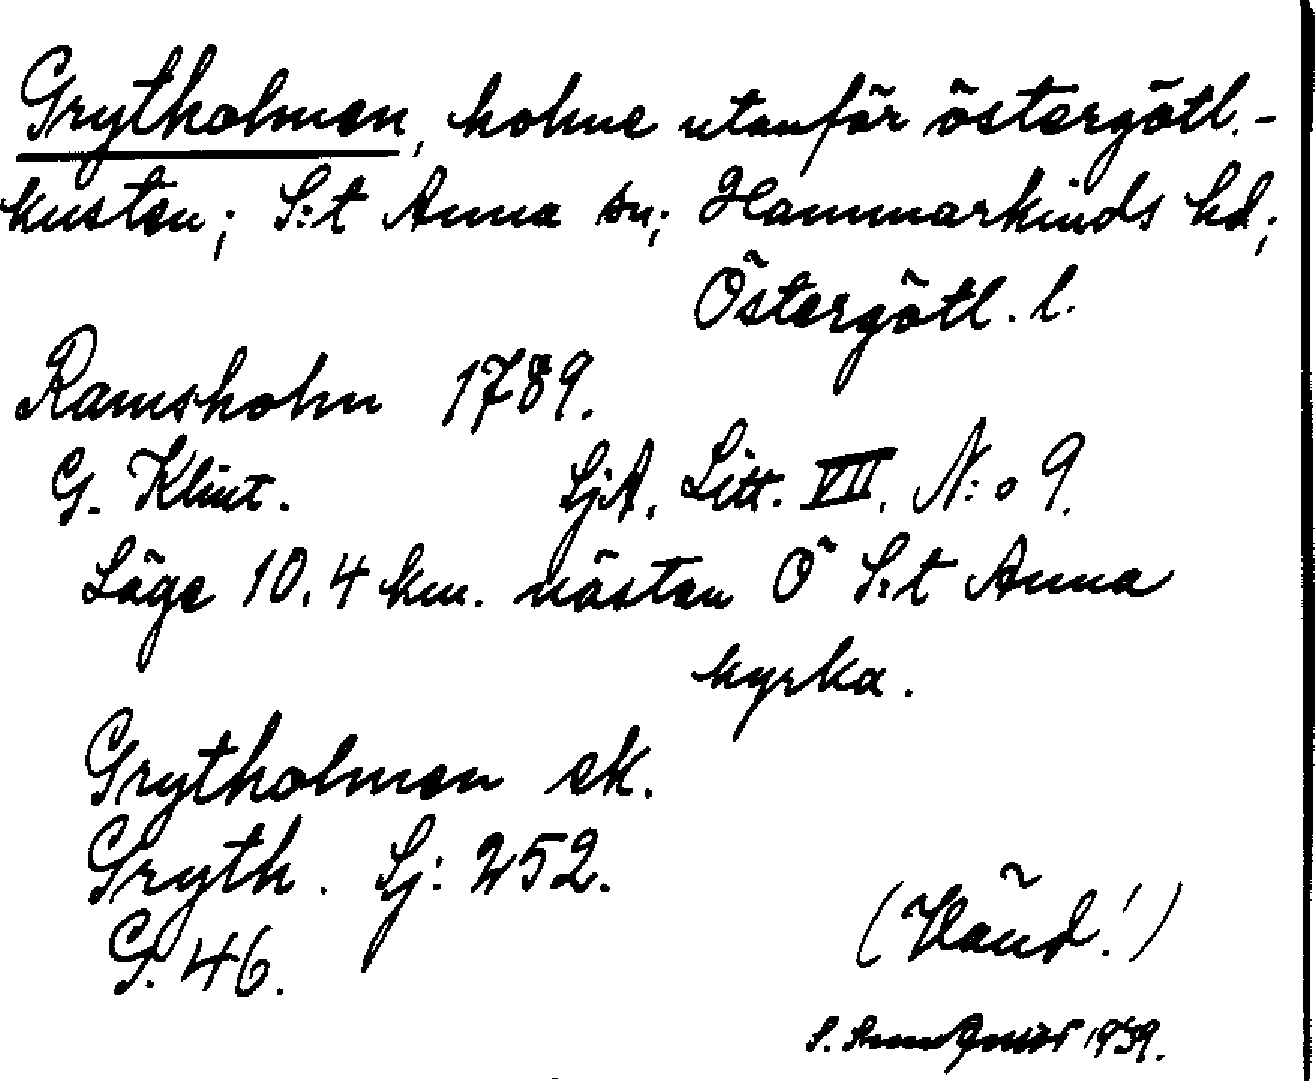 Grytholmen, holme utanför östergötl.-
kusten; S:t Anna sn; Hammarkinds hd;
Östergötl. l.
Ramsholm 1789.
G. Klint. SjA. Litt. VII. N:o 9.
Läge 10.4 km. nästan Ö S:t Anna
kyrka.
Grytholmen ek.
Gryth. Sj: 252.
G. 46.
(Vänd!)
S. 1939.